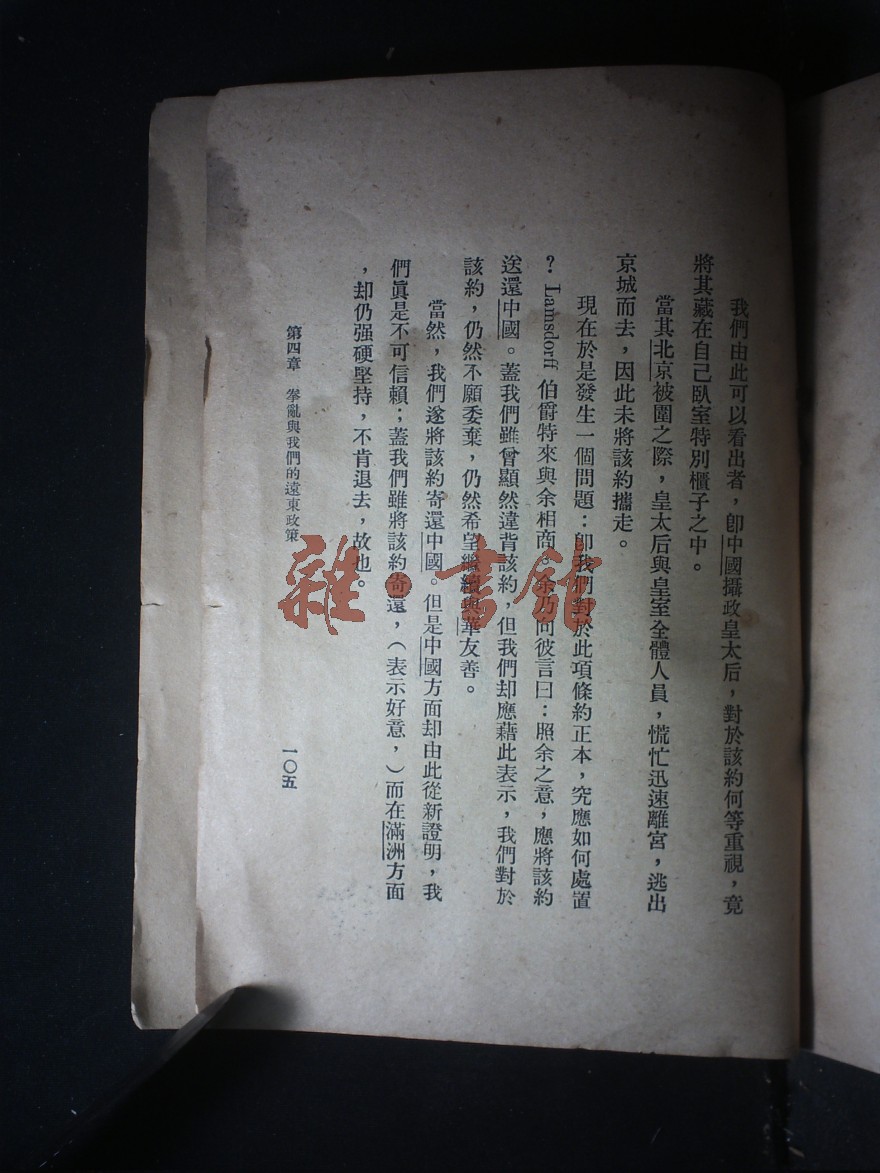 我們由此可以看出者，卽中國攝政皇太后，對於該約何等重視，竟
將其藏在自己臥室特別櫃子之中。
當其北京被圍之際，皇太后與皇室全體人員，慌忙迅速離宮，逃出
京城而去，因此未將該約攜走。
現在於是發生一個問題：卽我們對於此項條約正本，究應如何處置
？Lamsdorff 伯爵特來與余相商。余乃向彼言曰：照余之意，應將該約
送還中國。蓋我們雖曾顯然違背該約，但我們却應藉此表示，我們對於
該約，仍然不願委棄，仍然希望繼續與華友善。
當然，我們遂將該約寄還中國。但是中國方面却由此從新證明，我
們眞是不可信賴；蓋我們雖將該約寄還，（表示好意，）而在滿洲方面
，却仍强硬堅持，不肯退去，故也。
第四章　拳亂與我們的遠東政策
一〇五
雜·書館